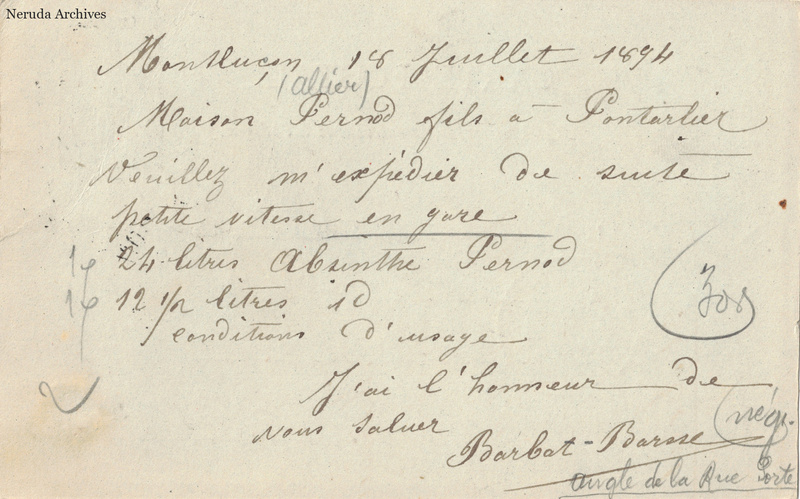 Neruda Archives
Montluçon 18 Juillet 1894
(Allier)
Maison Pernod fils à Pontarlier
Veuillez m'expédier de suite
petite vitesse en gare
24 litres Absinthe Pernod
12 1/2 litres id
conditions d'usage
J'ai l'honneur de
vous saluer
Barbat-Barsse
(nég.
angle de la Rue Porte